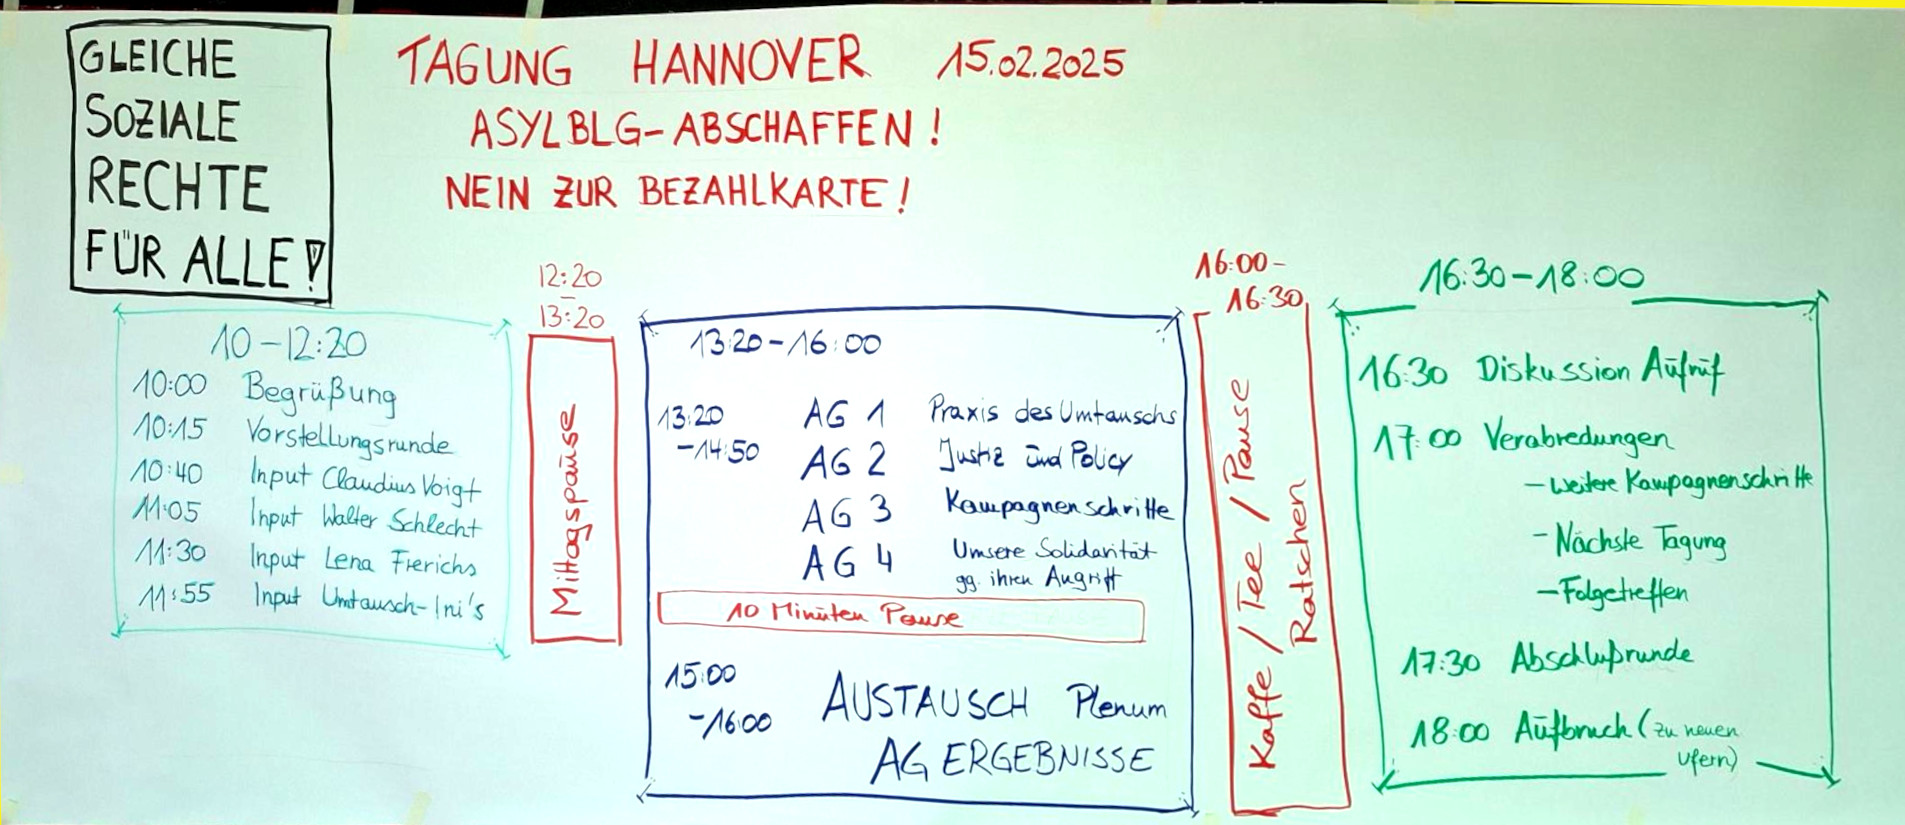 GLEICHE
SOZIALE
RECHTE
FÜR ALLE!
TAGUNG HANNOVER 15.02.2025
ASYLBLG-ABSCHAFFEN!
NEIN ZUR BEZAHLKARTE!
10-12:20
10:00 Begrüßung
10:15 Vorstellungsrunde
10:40 Input Claudius Voigt
11:05 Input Walter Schlecht
11:30 Input Lena Frerichs
11:55 Input Umtausch-Ini's
12:20
-
13:20
Mittagspause
13:20-16:00
13:20 AG 1 Praxis des Umtauschs
-14:50 AG 2 Justiz und Policy
AG 3 Kampagnenschritte
AG 4 Unsere Solidarität
gg. ihren Angriff
10 Minuten Pause
15:00
-16:00 AUSTAUSCH Plenum
AG ERGEBNISSE
16:00-
16:30
Kaffe / Tee / Pause
Ratschen
16:30-18:00
16:30 Diskussion Aufruf
17:00 Verabredungen
- weitere Kampagnenschritte
- Nächste Tagung
- Folgetreffen
17:30 Abschlußrunde
18:00 Aufbruch (zu neuen
Ufern)